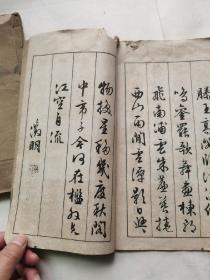 滕王高閣臨江
鳴鑾罷歌舞畫棟朝
飛南浦雲朱簾暮捲
西山雨閒雲潭影日悠
物換星移幾度秋閣
中帝子今何在檻外長
江空自流
徵明